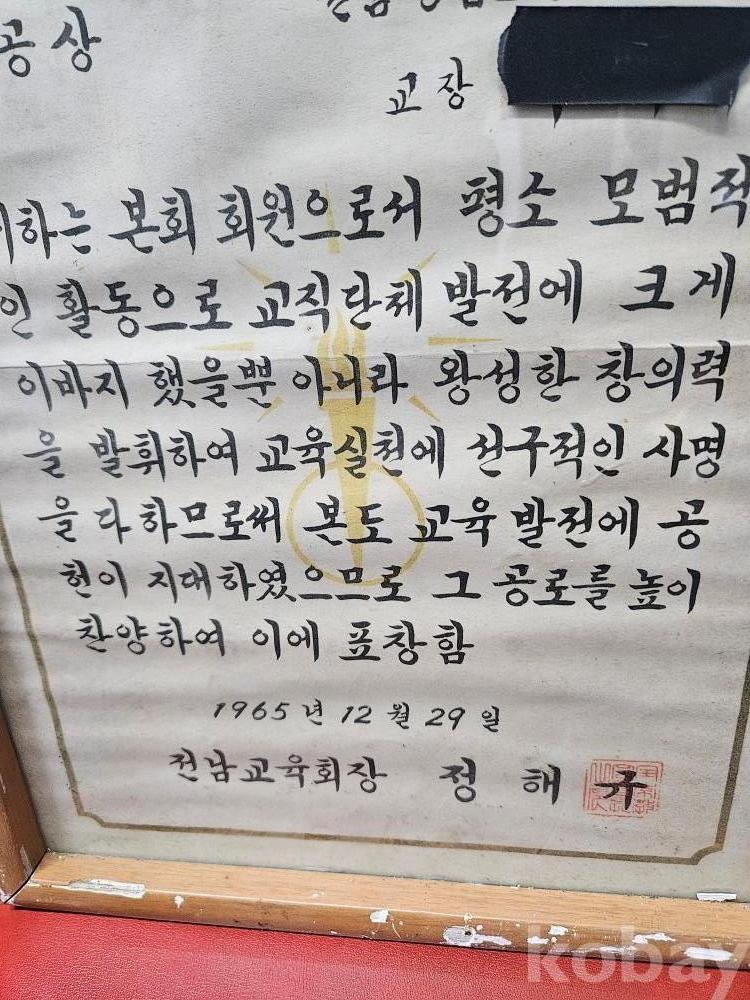 공상
교장
귀하는 본회 회원으로서 평소 모범적
인 활동으로 교직단체 발전에 크게
이바지 했을뿐 아니라 왕성한 창의력
을 발휘하여 교육실천에 선구적인 사명
을 다하므로써 본도 교육 발전에 공
헌이 지대하였으므로 그 공로를 높이
찬양하여 이에 표창함
1965년 12월 29일
전남교육회장 정해규
kobay